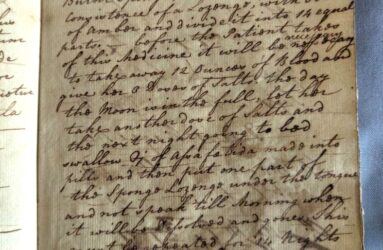 Burnt Spu
consistence of a Lozenge, with
of amber and divide it into 14 equal
parts; — before the Patient takes
of this Medicine it will be necessary
to take away 12 Ounces of Blood and
give her a Dose of Salts the day
the Moon is in the full, let her
take another dose of Salts, and
the next night going to bed
swallow of Assafetida made into
pills and then put one part of
the Sponge Lozenge under the tongue
and not speak till Morning when
it will be dissolved and gone. This
must be repeated for 14 Nights